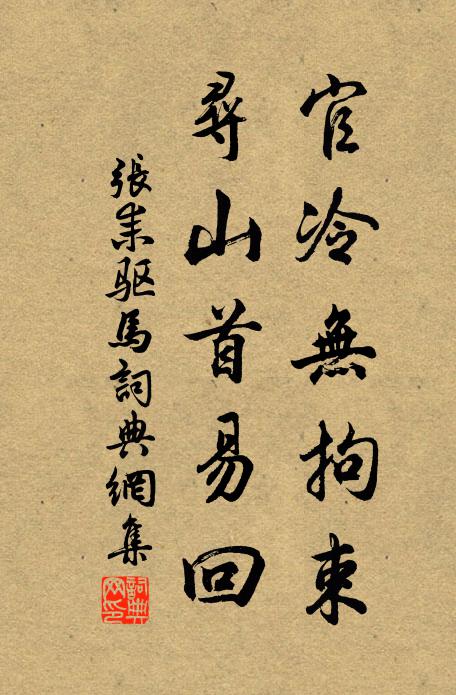 官冷無拘束
尋山首易回
張耒驱馬詞典網集
詞典
网印